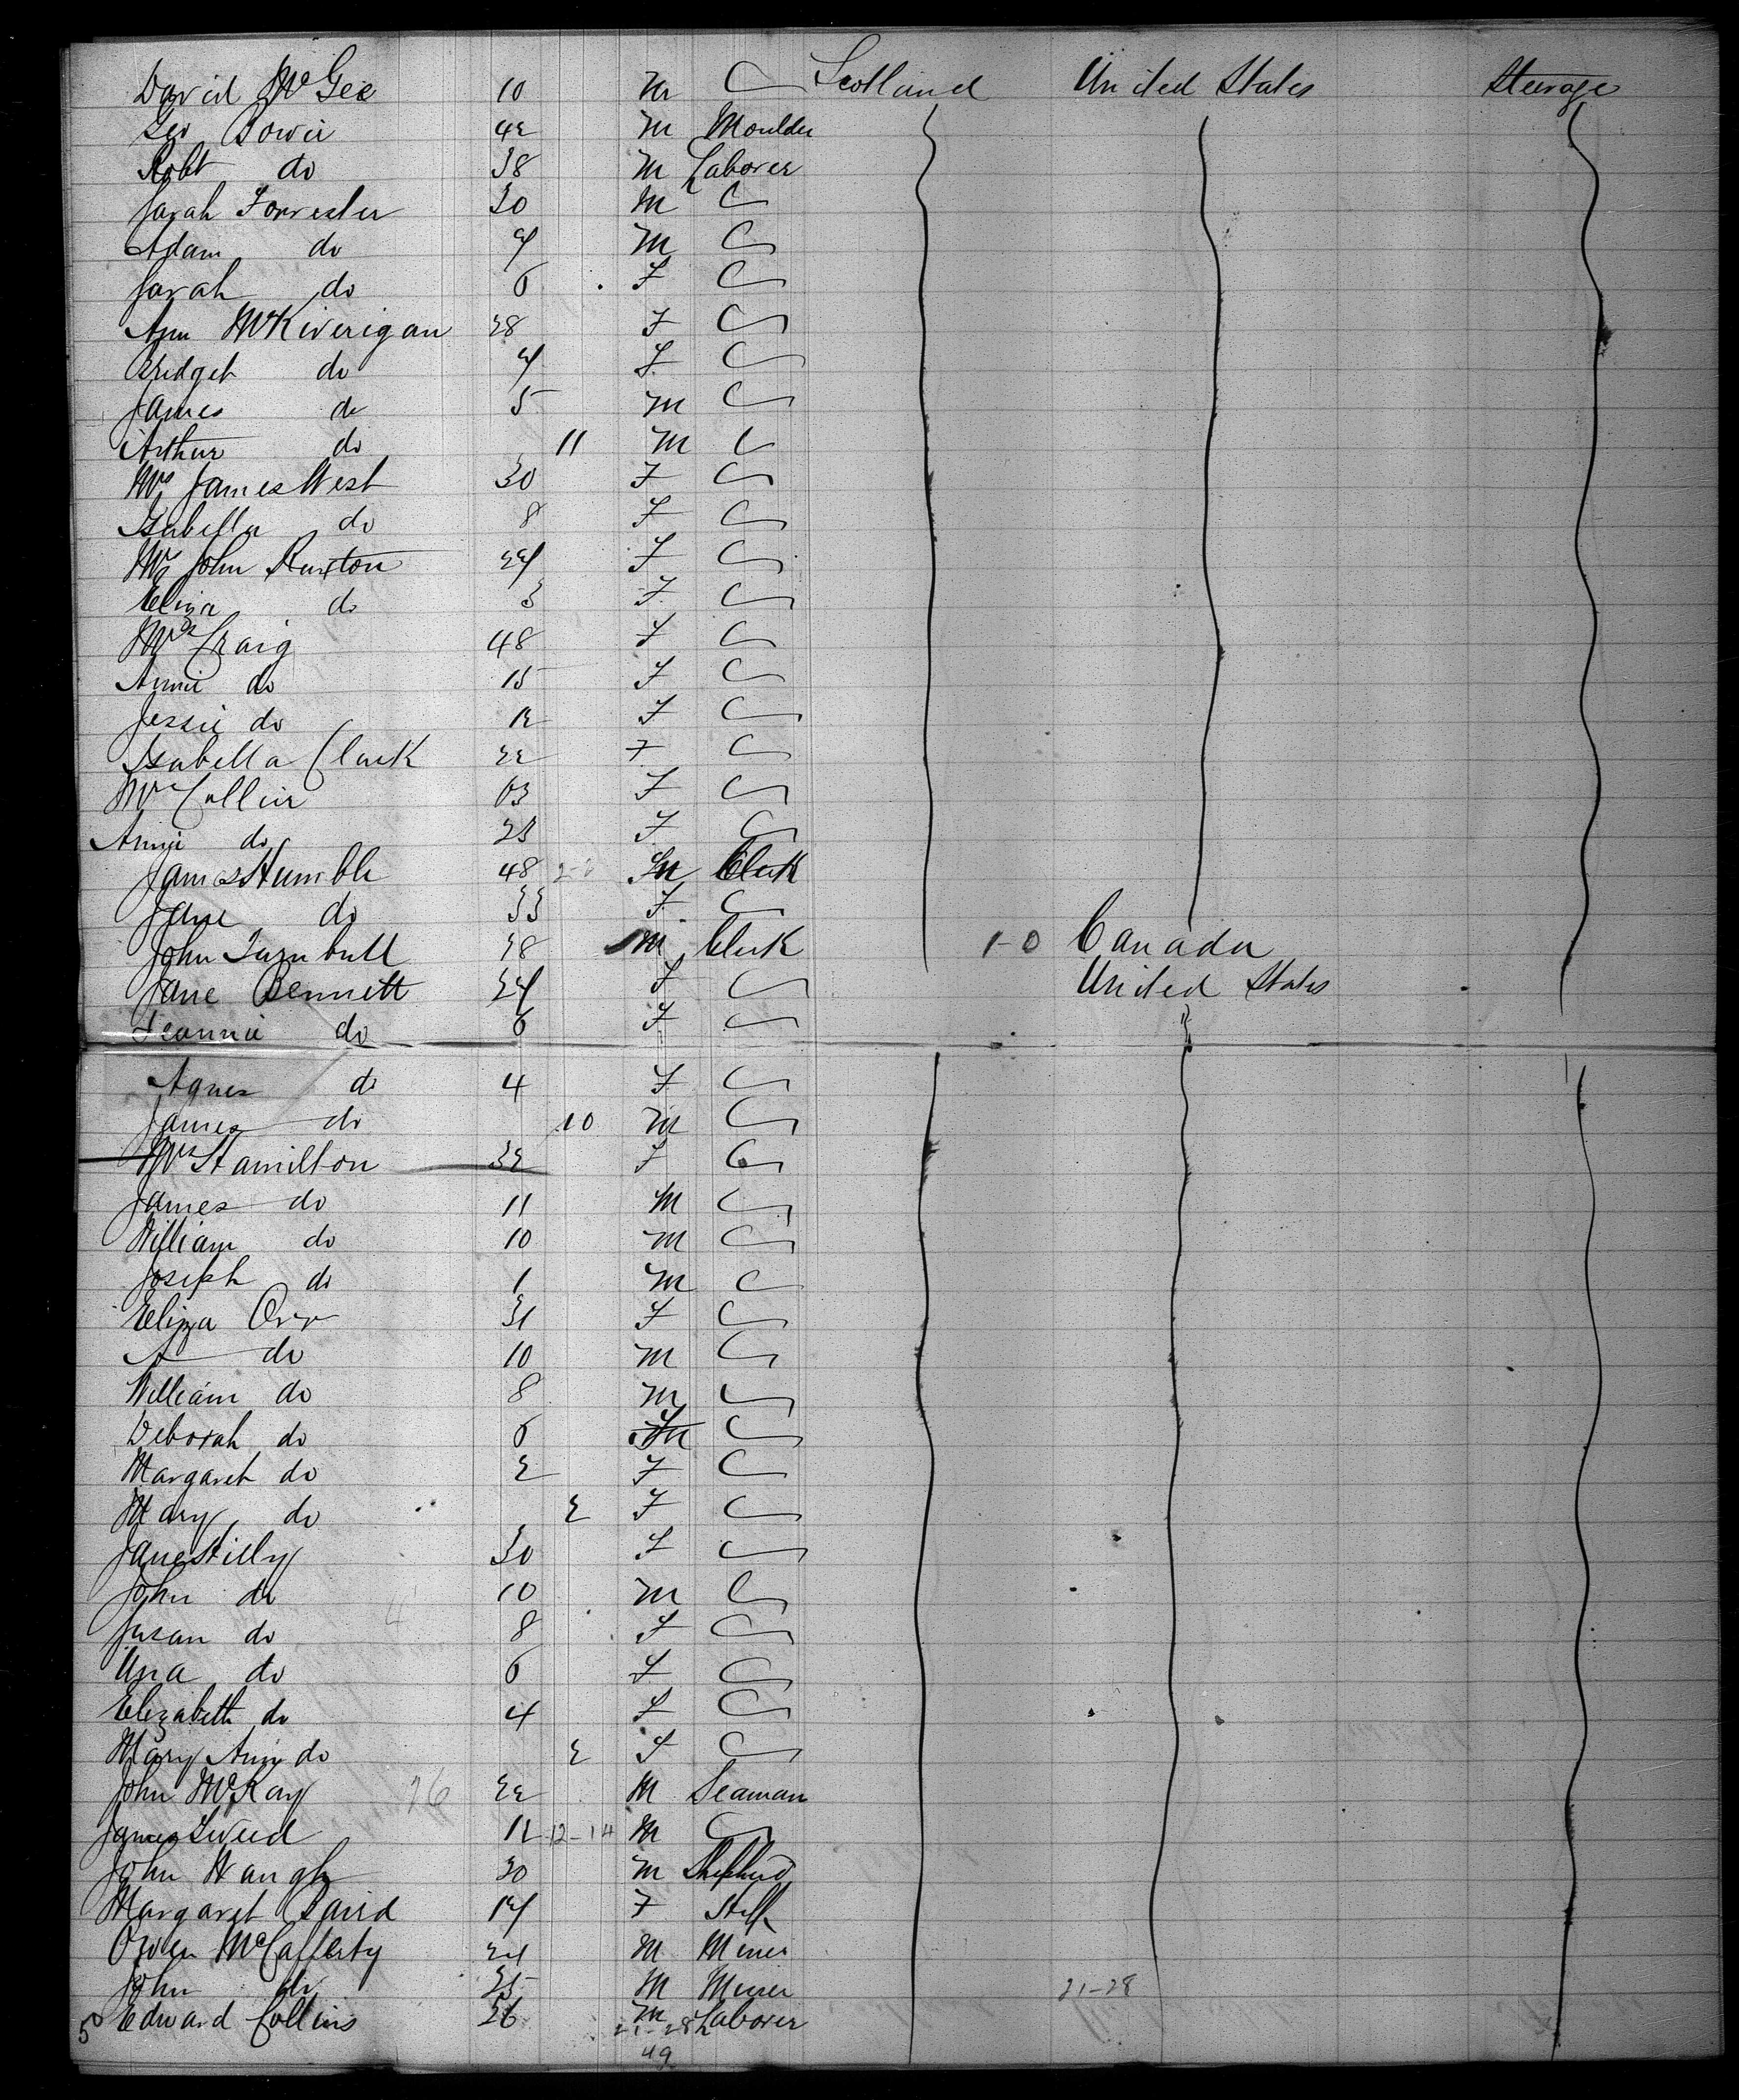 David McGee 10 m C Scotland United States Steerage
Geo Bowie 42 m Moulder
Robt do 38 m Laborer
Sarah Forrester 30 m C
Adam do 9 m C
Sarah do 6 F C
Ann McKiverigan 28 F C
Bridget do 9 F C
James do 5 m C
Arthur do 11 m C
Mrs James West 30 F C
Isabella do 8 F C
Mrs John Ruxton 29 F C
Eliza do 3 F C
Mrs Craig 48 F C
Annie do 15 F C
Jessie do 12 F C
Isabella Clark 22 F C
Mrs Collier 63 F C
Annie do 23 F C
James Humble 48 m Clerk
Jane do 33 F C
John Turnbull 38 m Clerk 1-0 Canada
Jane Bennett 29 F C United States
Jeannie do 6 F C
Agnes do 4 F C
James do 10 m C
Mrs Hamilton 32 F C
James do 11 m C
William do 10 m C
Joseph do 1 m C
Eliza Orr 31 F C
A do 10 m C
William do 8 m C
Deborah do 6 F C
Margaret do 2 F C
Mary do 2 F C
Jane Hilly 30 F C
John do 10 m C
Susan do 8 F C
Una do 6 F C
Elizabeth do 4 F C
Mary Ann do 2 F C
John McKay 22 m Seaman
James Sweed 12 12-14 m C
John Waugh 30 m Shepherd
Margaret Baird 19 F
Owen McCafferty 24 m Miner
John do 25 m Miner 21-28
50 Edward Collins 26 m Laborer
21-28
49